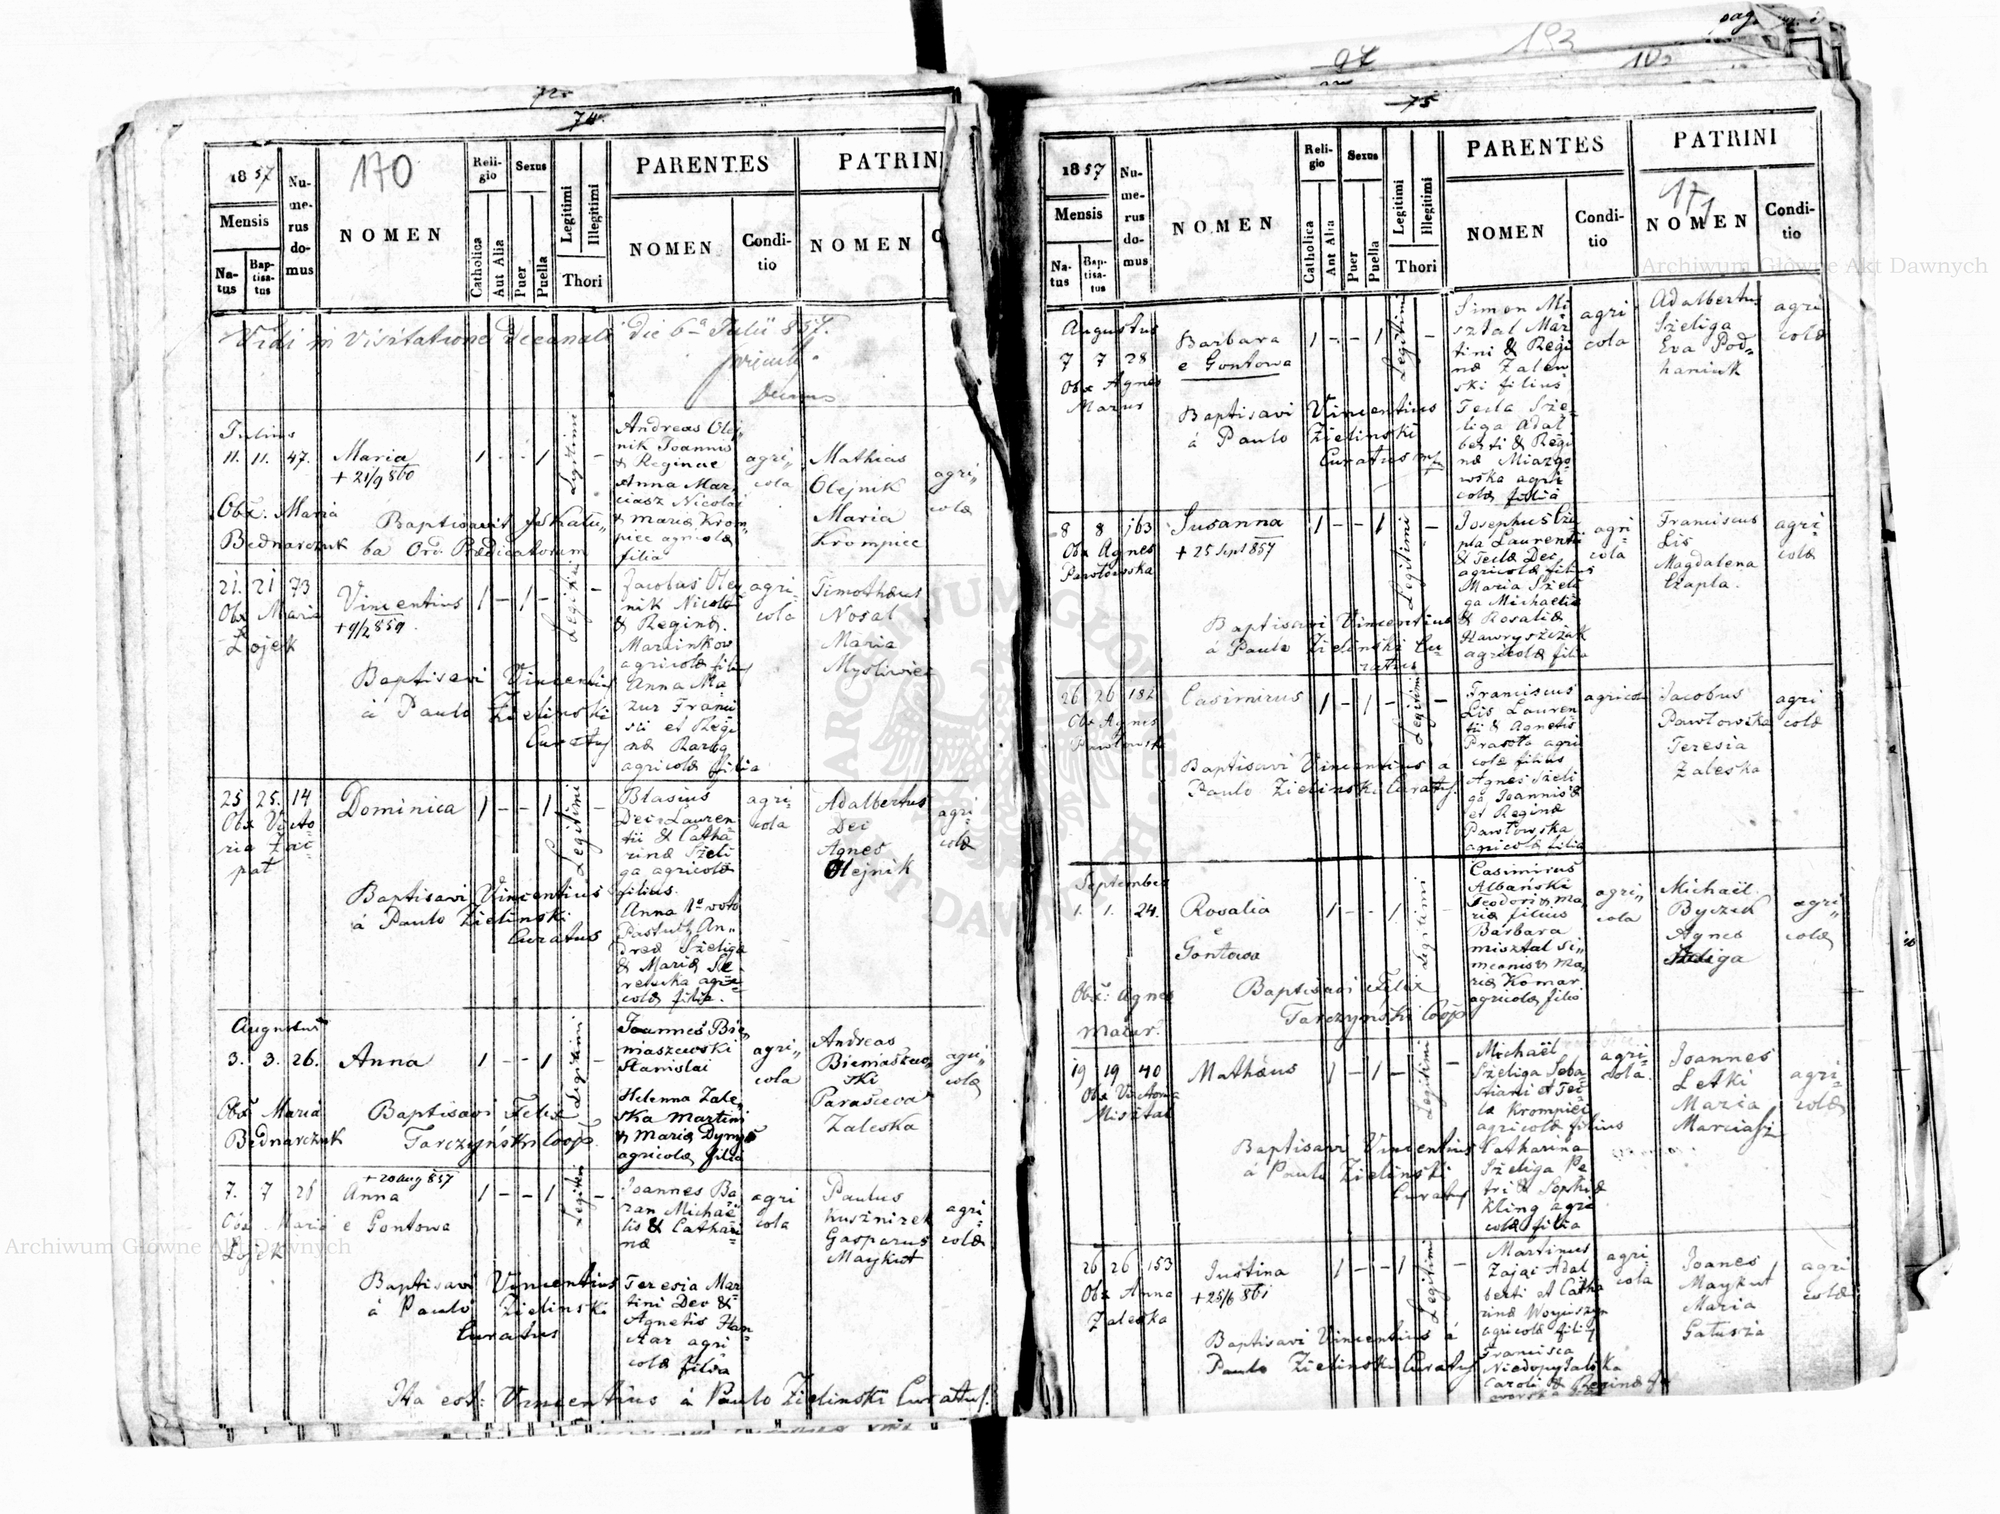 pag.
193
97
102
72
74
1857
Mensis
Na-
tus
Bap-
tisa-
tus
Nu-
me-
rus
do-
mus
170
NOMEN
Reli-
gio
Catholica
Aut Alia
Sexus
Puer
Puella
Legitimi
Illegitimi
Thori
PARENTES
NOMEN
Condi-
tio
PATRIN
NOMEN
C
Vidi in Visitatione Decanali Die 6ta Julii 857.
Julius
11. 11. 47.
Obx. Maria
Bednarczuk
Maria
+ 21/9 860
Baptisavit
ba Ord. Prædicatorum
1 - - 1 Legitimi -
Andreas Olej„
nik Joannis
& Reginae
Anna Mar„
ciasz Nicolai
& Mariæ Krom„
piec agricolæ
filia
agri„
cola
Mathias
Olejnik
Maria
Krompiec
agri„
colæ
21. 21 73
Obx Maria
Łojek
Vincentius
+ 9/2 859.
1 - 1 - Legitimi -
Baptisavi Vincentius
à Paulo Zielinski
Curatus
Jacobus Olej
nik Nicolai
& Reginæ
Marcinkow
agricolæ filius
Anna Ma-
zur Franci
sci et Regi
næ Rarog
agricolæ filia
agri-
cola
Timothæus
Nosal
Maria
Mysliwiec
25 25. 14
Obx Victo-
ria Zaś-
pat
Dominica
1 - - 1 Legitimi -
Baptisavi Vincentius
à Paulo Zielinski
Curatus
Blasius
Dec Lauren
tii & Catha-
rinæ Szeli
ga agricolæ
filius.
Anna 1º voto
Pastuch An„
dreæ Szeliga
& Mariæ
agri-
colæ filia.
agri
cola
Adalbertus
Dec
Agnes
Olejnik
agri-
colæ
Augustus
3. 3. 26.
Obx Maria
Bednarczuk
Anna
1 - - 1 Legitimi -
Baptisavi Felix
Tarczyński Coop.
Joannes Bie
niaszewski
Stanislai
Helenna Zale
ska Martini
& Mariæ
agricolæ filia
agri„
cola
Andreas
Bieniaszew„
ski
Parasceva
Zaleska
agri„
colæ
+ 20 aug 857
7. 7 28
Obx. Maria
Łojek
Anna
e Gontowa
1 - - 1 Legitimi -
Baptisavi Vincentius
à Paulo Zielinski
Curatus
Joannes Ba
ran Michae
lis & Cathari
næ
Teresia Mar
tini Dec &
Agnetis
agri
colæ filia
agri
cola
Paulus
Kusznirek
Gasparus
Maykut
agri-
colæ
Ita est: Vincentius à Paulo Zielinski Curatus.
75
1857
Mensis
Na-
tus
Bap-
tisa-
tus
Nu-
me-
rus
do-
mus
NOMEN
Reli-
gio
Catholica
Aut Alia
Sexus
Puer
Puella
Legitimi
Illegitimi
Thori
PARENTES
NOMEN
Condi-
tio
PATRINI
171
NOMEN
Condi-
tio
Augustus
7 7 28
Obx Agnes
Mazur
Barbara
e Gontowa
1 - - 1 Legitimi -
Baptisavi Vincentius
à Paulo Zielinski
Curatus
Simon Mi
sztal Mar
tini & Regi
næ Zalew
ski filius
Tecla Sze-
liga Adal
berti & Regi
næ Miazgo-
wska agri
colæ filia
agri
cola
Adalbertus
Szeliga
Eva Pod„
haniuk
agri
colæ
8 8 163
Obx Agnes
Pawłowska
Susanna
+ 25 Sept 857
1 - - 1 Legitimi -
Baptisavi Vincentius
à Paulo Zielinski Cu-
ratus
Josephus Cza
pla Laurenti
& Teclæ Dec
agricolæ filius
Maria Szeli
ga Michaelis
& Rosaliæ
Hawryszczak
agricolæ filia
agri
cola
Franciscus
Lis
Magdalena
Czapla.
agri
colæ
26 26 182
Obx Agnes
Pawłowska
Casimirus
1 - 1 - Legitimi -
Baptisavi Vincentius a
Paulo Zielinski Curatus
Franciscus
Lis Lauren
tii & Agnetis
Prasoła agri
colæ filius
Agnes Szeli
ga Joannis
et Reginæ
Pawłowska
agricolæ filia
agricola
Jacobus
Pawłowska
Teresia
Zaleska
agri
colæ
September
1. 1. 24.
Obx: Agnes
Mazur.
Rosalia
e
Gontowa
1 - - 1 Legitimi -
Baptisavi Felix
Tarczyński Coop
Casimirus
Albański
Teodori & Ma„
riæ filius
Barbara
Misztal Si„
meonis & Ma„
riæ Komar
agricolæ filia
agri„
cola
Michaël
Byczek
Agnes
Szeliga
agri„
colæ
19 19 40
Obx Victoria
Misztal
Mathæus
1 - 1 - Legitimi -
Baptisavi Vincentius
à Paulo Zielinski
Curatus
Michaël
Szeliga Seba
stiani et Tec
læ Krompiec
agricolæ filius
Catharina
Szeliga Pe
tri & Sophiæ
Kling agri
colæ filia
agri-
cola.
Joannes
Letki
Maria
Marciasz
agri-
colæ
26 26 153
Obx Anna
Zaleska
Justina
+ 25/6 861
1 - - 1 Legitimi -
Baptisavi Vincentius à
Paulo Zielinski Curatus
Martinus
Zając Adal
berti et Catha
rinæ
agricolæ filius
Francisca
Niedopytalska
Caroli & Reginæ
agri
cola
Joanes
Maykut
Maria
Galusia
agri
colæ
Archiwum Główne Akt Dawnych
Archiwum Główne Akt Dawnych
ARCHIWUM GŁÓWNE AKT DAWNYCH